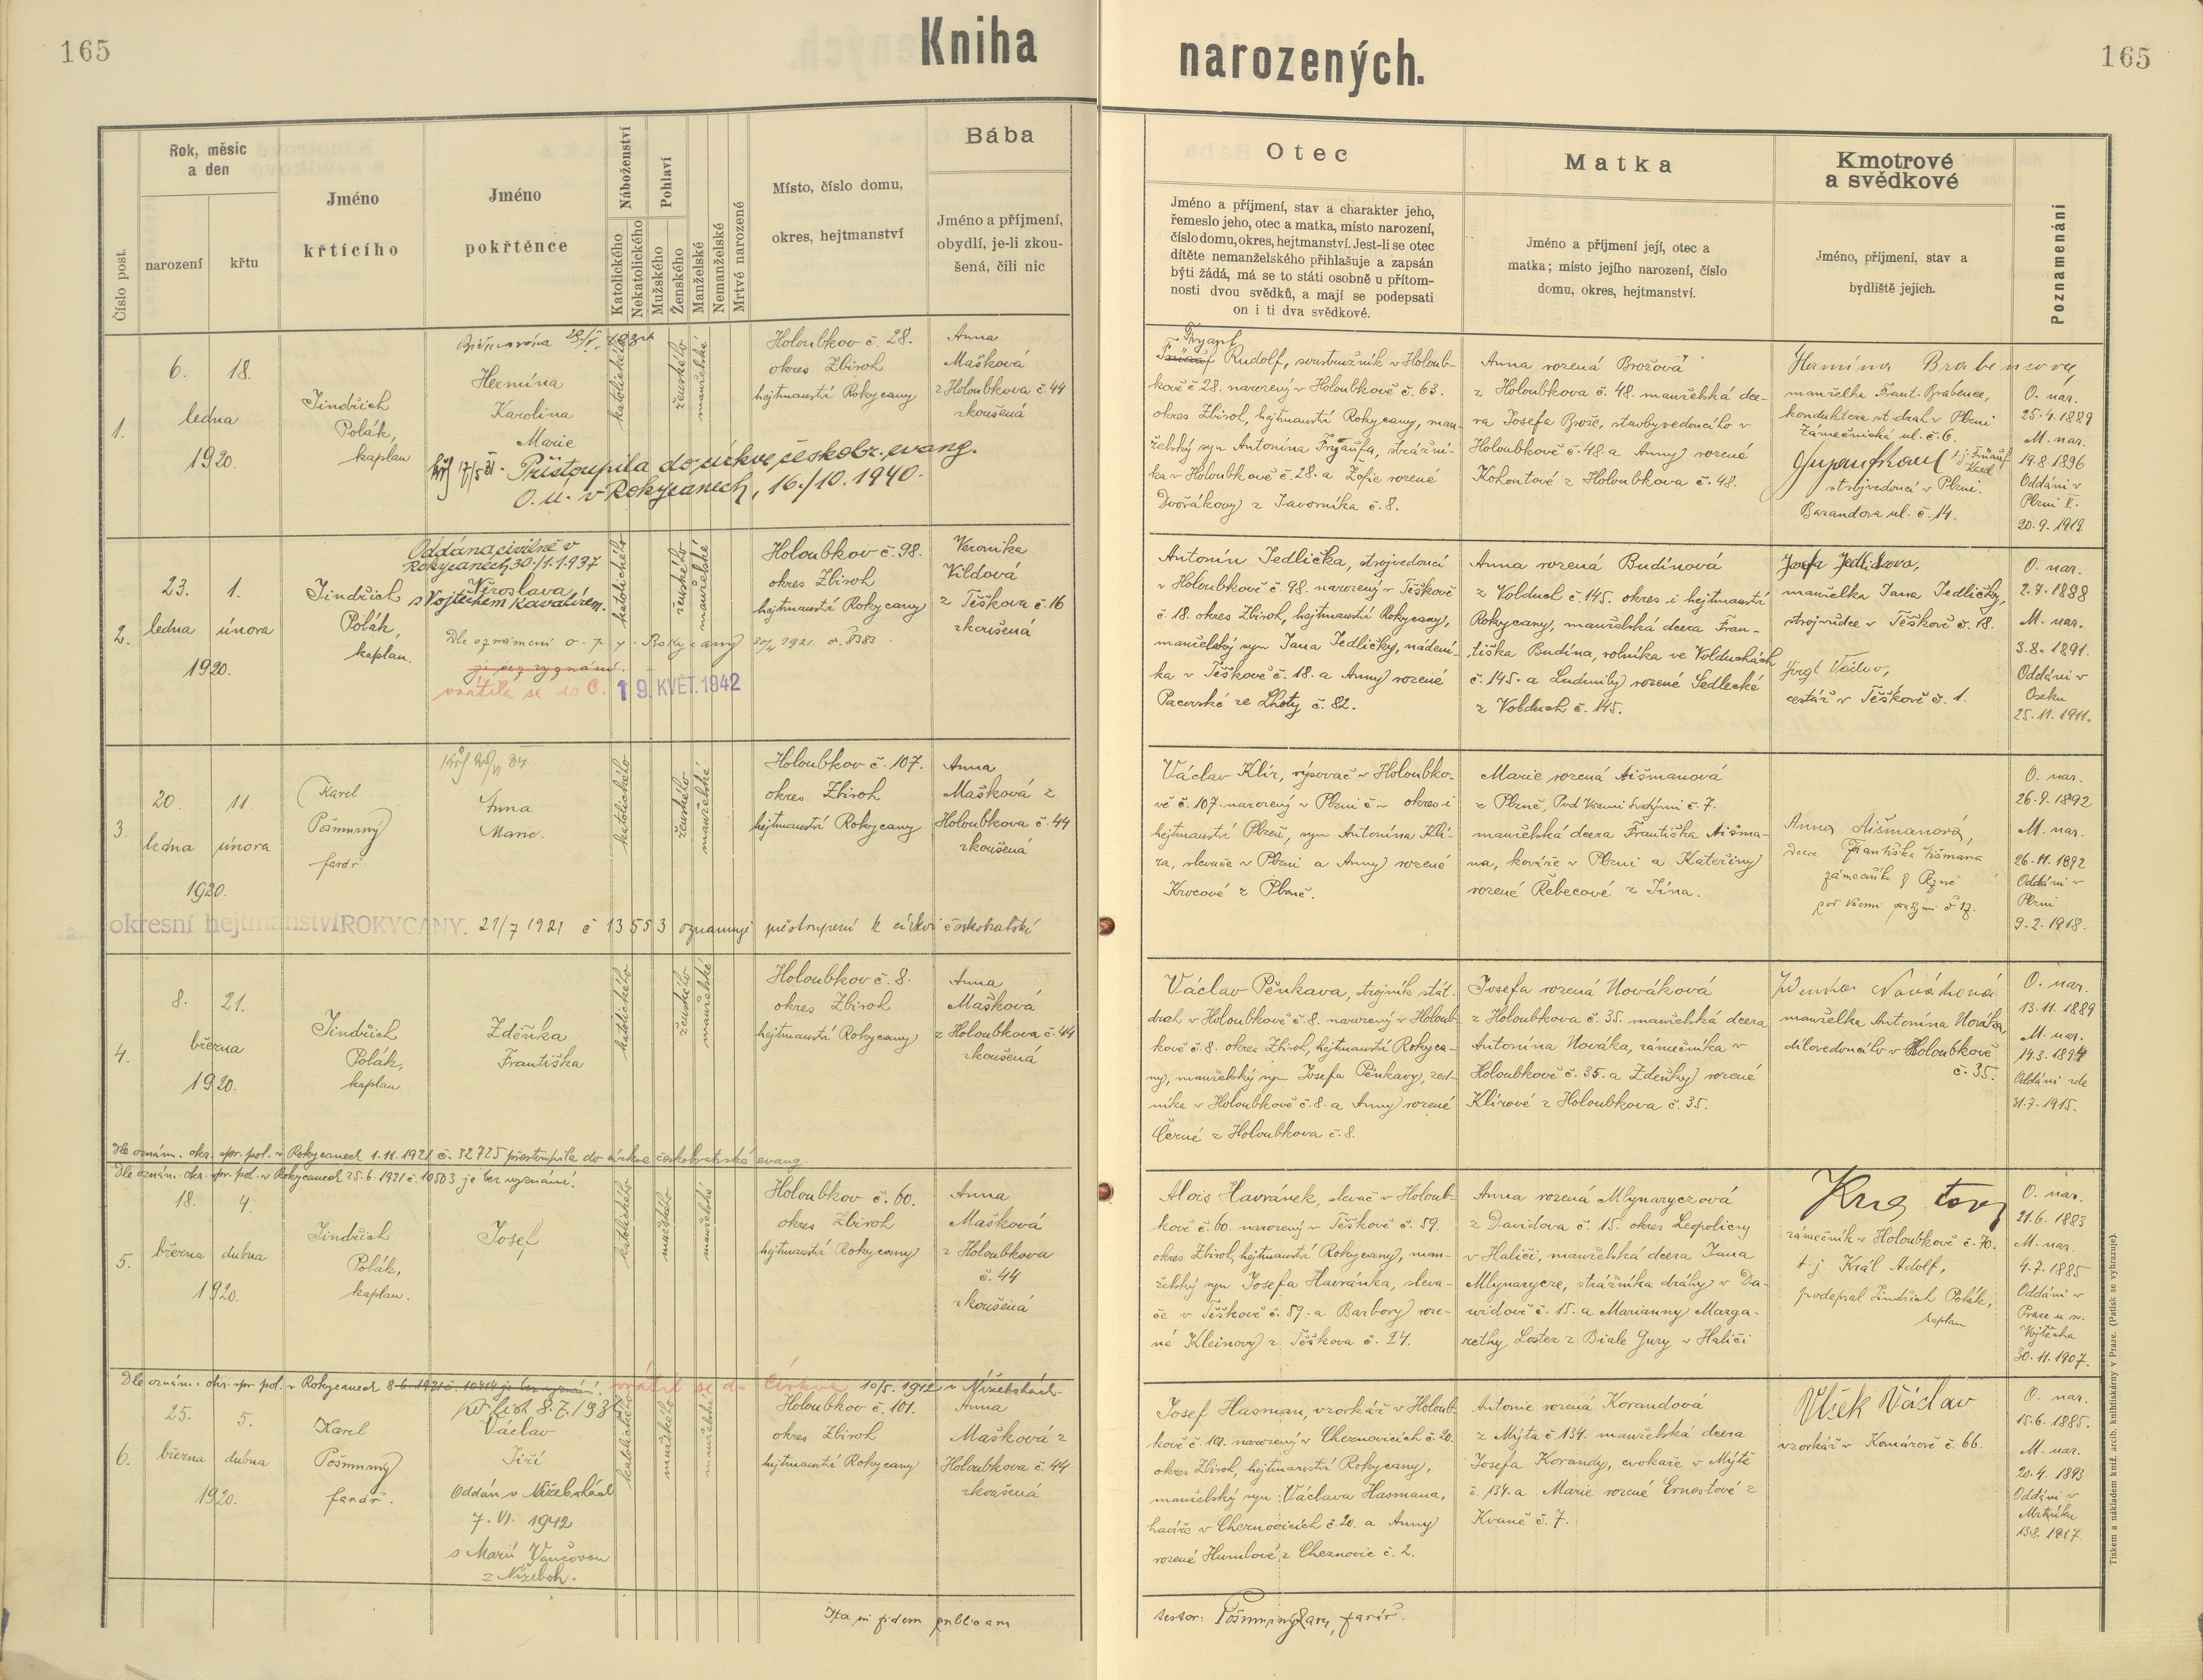 165
Kniha
narozených.
165
Číslo post.
Rok, měsíc
a den
narození
křtu
Jméno
křtícího
Jméno
pokřtěnce
Náboženství
Katolického
Nekatolického
Pohlaví
Mužského
Ženského
Manželské
Nemanželské
Mrtvé narozené
Místo, číslo domu,
okres, hejtmanství
Bába
Jméno a příjmení,
obydlí, je-li zkou-
šená, čili nic
Otec
Jméno a příjmení, stav a charakter jeho,
řemeslo jeho, otec a matka, místo narození,
číslo domu, okres, hejtmanství. Jest-li se otec
dítěte nemanželského přihlašuje a zapsán
býti žádá, má se to státi osobně u přítom-
nosti dvou svědků, a mají se podepsati
on i ti dva svědkové.
Matka
Jméno a příjmení její, otec a
matka; místo jejího narození, číslo
domu, okres, hejtmanství.
Kmotrové
a svědkové
Jméno, příjmení, stav a
bydliště jejich.
Poznamenání
1.
6. 18.
ledna
1920.
Jindřich
Polák,
kaplan
Hermína
Karolina
Marie
Přistoupila do církve českobr. evang.
v Rokycanech, 16./10. 1940.
katolického
ženského
manželské
Holoubkov č. 28.
okres Zbiroh
hejtmanství Rokycany
Anna
Mašková
z Holoubkova č. 44
zkoušená
Rudolf, soustružník v Holoub-
kově č. 28. narozený v Holoubkově č. 63.
okres Zbiroh, hejtmanství Rokycany, man-
želský syn Antonína, strážní-
ka v Holoubkově č. 28. a Žofie rozené
Dvořákovy z Javorníka č. 8.
Anna rozená Brožová
z Holoubkova č. 48. manželská dce-
ra Josefa Brože, stavbyvedoucího v
Holoubkově č. 48. a Anny rozené
Kohoutové z Holoubkova č. 48.
Hermína Brabencova,
manželka Frant. Brabence,
konduktera st. drah v Plzni
Zámečnická ul. č. 6.
strojvedoucí v Plzni.
Barandova ul. č. 14.
O. nar.
25. 4. 1889
M. nar.
19. 8. 1896
Oddáni v
Plzni
20. 9. 1919.
2.
23. 1.
ledna února
1920.
Jindřich
Polák,
kaplan.
Oddána civilně v
Rokycanech 30./1. 1937
Věroslava
s Vojtěchem Kavalírem.
Dle oznámení o. p. s. Rokycany
vrátila se do C. 19. KVĚT. 1942
katolického
ženského
manželské
Holoubkov č. 98.
okres Zbiroh
hejtmanství Rokycany
Veronika
Vildová
z Těškova č. 16
zkoušená
Antonín Jedlička, strojvedoucí
v Holoubkově č. 98. narozený v Těškově
č. 18. okres Zbiroh, hejtmanství Rokycany,
manželský syn Jana Jedličky, nádení-
ka v Těškově č. 18. a Anny rozené
Pacovské ze Lhoty č. 82.
Anna rozená Budínová
z Volduch č. 145. okres i hejtmanství
Rokycany, manželská dcera Fran-
tiška Budína, rolníka ve Volduchách
č. 145. a Ludmily rozené Sedlecké
z Volduch č. 145.
Josefa Jedličkova,
manželka Jana Jedličky,
strojvůdce v Těškově č. 18.
cestář v Těškově č. 1.
O. nar.
2. 7. 1888
M. nar.
3. 8. 1891.
Oddáni v
Oseku
25. 11. 1911.
3.
20. 11.
ledna února
1920.
Karel
Pošmurný
farář
Anna
Marie.
katolického
ženského
manželské
Holoubkov č. 107.
okres Zbiroh
hejtmanství Rokycany
Anna
Mašková z
Holoubkova č. 44
zkoušená
okresní hejtmanství ROKYCANY. 21/7 1921 č 13553 oznamuje přestoupení k církvi českobratrské
Václav Klír, rýsovač v Holoubko-
vě č. 107. narozený v Plzni č – okres i
hejtmanství Plzeň, syn Antonína Klí-
ra, slevače v Plzni a Anny rozené
Krocové z Plzně.
Marie rozená Aišmanová
z Plzně, Pod Všemi Svatými č. 7.
manželská dcera Františka Aišma-
na, kováře v Plzni a Kateřiny
rozené Řebecové z Jína.
Anna Aišmanová,
dcera Františka Aišmana
zámečníka z Plzně
pod všemi svatými č 17.
O. nar.
26. 9. 1892
M. nar.
26. 11. 1892
Oddáni v
Plzni
9. 2. 1918.
4.
8. 21.
března
1920.
Jindřich
Polák,
kaplan
Zdeňka
Františka
katolického
ženského
manželské
Holoubkov č. 8.
okres Zbiroh
hejtmanství Rokycany
Anna
Mašková
z Holoubkova č. 44
zkoušená
Dle oznám. okr. spr. pol. v Rokycanech 1. 11. 1921 č. 52725 přestoupila do církve českobratrské evang.
Václav Pěnkava, strojník stát.
drah v Holoubkově č. 8. narozený v Holoub-
kově č. 8. okres Zbiroh, hejtmanství Rokyca-
ny, manželský syn Josefa Pěnkavy, zed-
níka v Holoubkově č. 8. a Anny rozené
Černé z Holoubkova č. 8.
Josefa rozená Nováková
z Holoubkova č. 35. manželská dcera
Antonína Nováka, zámečníka v
Holoubkově č. 35. a Zdeňky rozené
Klírové z Holoubkova č. 35.
Zdenka Nováková
manželka Antonína Nováka,
dílovedoucího v Holoubkově
č. 35.
O. nar.
13. 11. 1889
M. nar.
14. 3. 1894
Oddáni zde
31. 7. 1915.
Dle oznám. okr. spr. pol. v Rokycanech 25. 6. 1921 č. 10503 je bez vyznání.
5.
18. 4.
března dubna
1920.
Jindřich
Polák,
kaplan.
Josef
katolického
mužského
manželské
Holoubkov č. 60.
okres Zbiroh
hejtmanství Rokycany
Anna
Mašková
z Holoubkova
č. 44
zkoušená
Alois Havránek, slevač v Holoub-
kově č. 60. narozený v Těškově č. 59.
okres Zbiroh, hejtmanství Rokycany, man-
želský syn Josefa Havránka, sleva-
če v Těškově č. 59. a Barbory roze-
né Kleinovy z Těškova č. 24.
Anna rozená Mlynaryczová
z Davidova č. 15. okres Leopolicny
v Haliči, manželská dcera Jana
Mlynarycze, strážníka dráhy v Da-
widově č. 15. a Marianny Marga-
rethy Loster z Biale Gury v Haliči
zámečník v Holoubkově č. 70.
t. j. Král Adolf,
podepsal Jindřich Polák,
kaplan
O. nar.
21. 6. 1883
M. nar.
4. 7. 1885
Oddáni v
Praze u sv.
Vojtěcha
30. 11. 1907.
Dle oznám. okr. spr. pol. v Rokycanech 8. 6. 1921 č. 10414 je bez vyznání. vrátil se do Církve 10/5. 1942 v Nížebohách.
6.
25. 5.
března dubna
1920.
Karel
Pošmurný
farář.
Křř list 8. 7. 193
Václav
Jiří
Oddán v Nížebohách
7. VI. 1942
s Marií Vančovou
z Nížeboh.
katolického
mužského
manželské
Holoubkov č. 101.
okres Zbiroh
hejtmanství Rokycany
Anna
Mašková z
Holoubkova č. 44
zkoušená
Josef Hasman, vzorkář v Holoub-
kově č. 101. narozený v Cheznovicích č. 20.
okres Zbiroh, hejtmanství Rokycany,
manželský syn Václava Hasmana,
havíře v Cheznovicích č. 20. a Anny
rozené Humlové z Cheznovic č. 2.
Antonie rozená Korandová
z Mýta č. 134. manželská dcera
Josefa Korandy, cvokaře v Mýtě
č. 134. a Marie rozené Ernestové z
Kvaně č. 7.
Vlček Václav
vzorkář v Komárově č. 66.
O. nar.
15. 6. 1885.
M. nar.
20. 4. 1893
Oddáni v
Mrtníku
13. 8. 1917.
Ita in fidem publicam
testor: Pošmurný Karel, farář.
Tiskem a nákladem kníž. arcib. knihtiskárny v Praze. (Patisk se vyhrazuje).